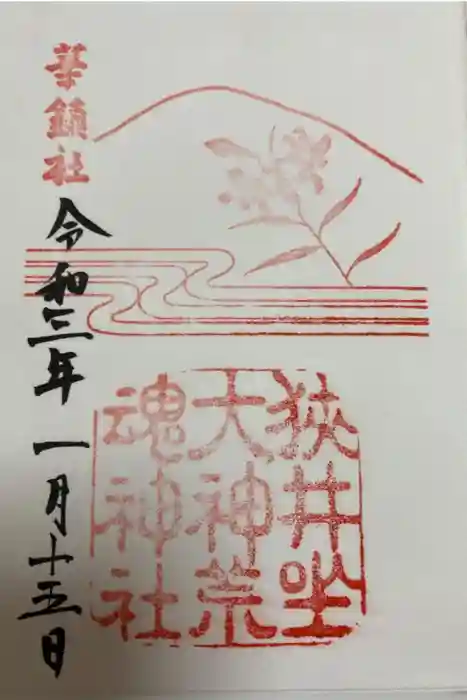 狭井坐
大神荒
魂神社
華鎮社
令和三年 一月十五日